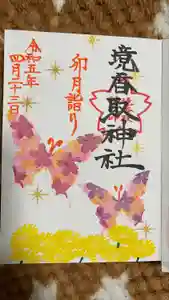 境香取神社
卯月詣り
令和五年
四月二十三日